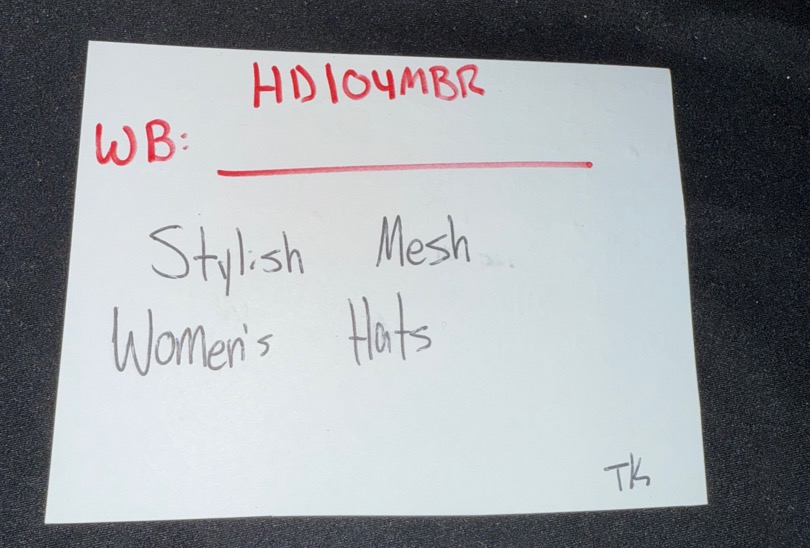 HD104MBR
WB:
Stylish Mesh
Women's Hats
TK